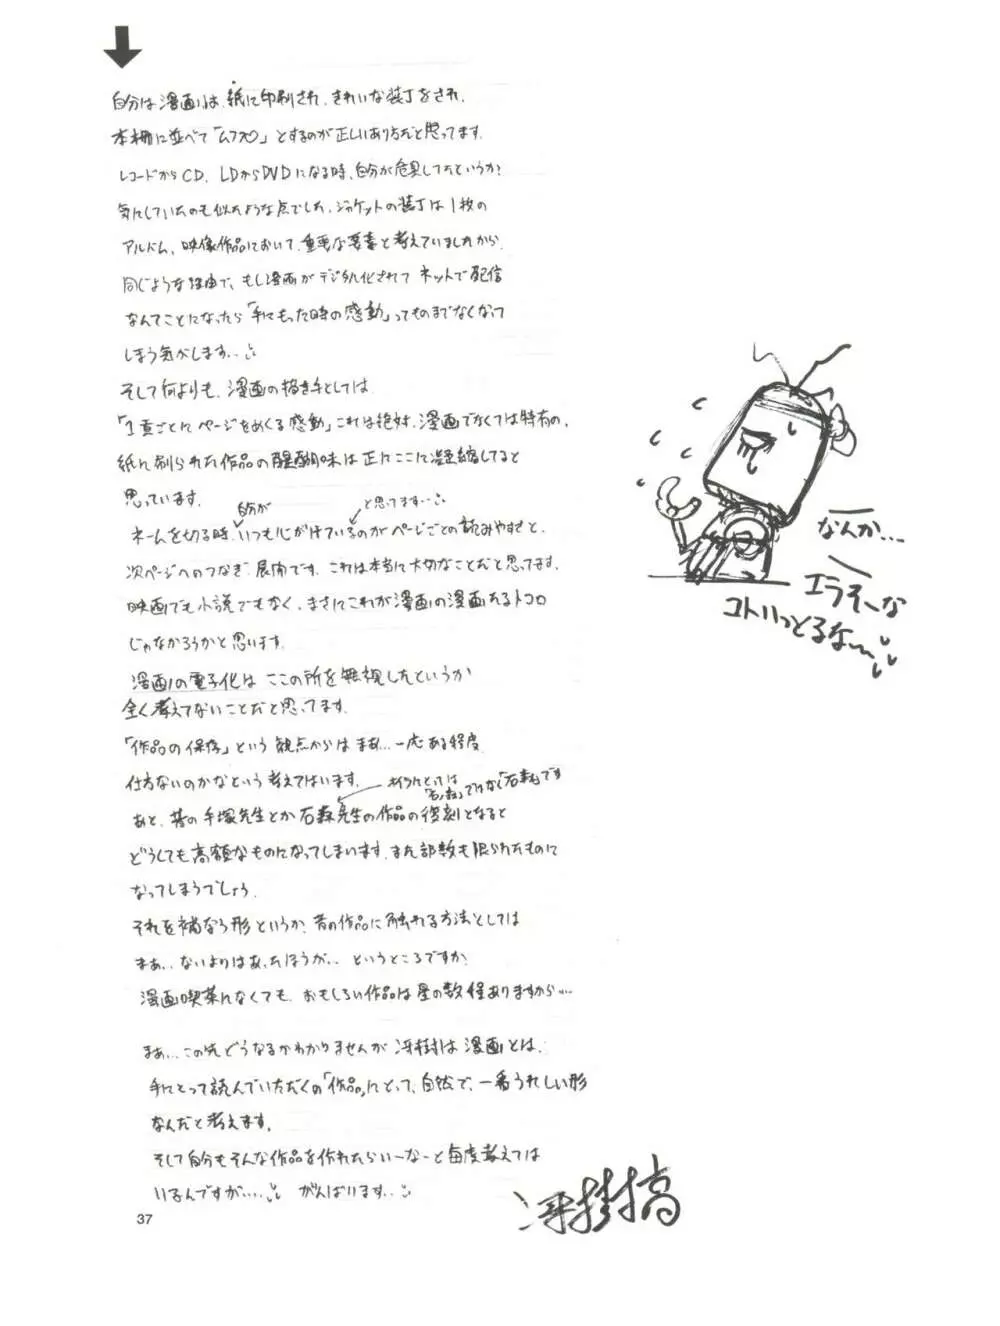 自分は漫画は、紙に印刷され、きれいな装丁をされ、
本棚に並べて「ムフフ♡」とするのが正しいあり方だと思ってます。
レコードからCD、LDからDVDになる時、自分が危具してたというか?
気にしていたのも似たような点でした。ジャケットの装丁は1枚の
アルバム、映像作品において、重要な要素と考えていましたから
同じような理由で、もし漫画がデジタル化されて ネットで配信
なんてことになったら「手にもった時の感動」ってものまでなくなって
しまう気がします...
そして何よりも、漫画の描き手としては
「1頁ごとにページをめくる感動」これは絶対、漫画でなくては特有の、
紙に刷られた作品の醍醐味は正にここに凝縮してると
思っています。
自分が
と思ってます...
ネームを切る時、いつも心がけているのがページごとの読みやすさと、
次ページへのつなぎ、展開です。これは本当に大切なことだと思ってます。
映画でも小説でもなく、まさにこれが漫画の漫画たるトコロ
じゃなかろうかと思います。
漫画の電子化は ここの所を無視したというか
全く考えてないことだと思ってます。
「作品の保存」という観点からは まあ...一応ある程度
仕方ないのかなという考えてはいます。
オイラにとっては
「石ノ森」ではなく「石森」です
あと、昔の手塚先生とか石森先生の作品の復刻となると
どうしても高額なものになってしまいます。また部数も限られたものに
なってしまうでしょう。
それを補なう形というか、昔の作品に触れる方法としては
まあ...ないよりはあったほうが... というところですか?
漫画喫茶になくても、おもしろい作品は星の数程ありますから...
まあ...この先どうなるかわかりませんが 冴樹は漫画とは、
手にとって読んでいただくの「作品」にとって、自然で、一番うれしい形
なんだと考えます。
そして自分もそんな作品を作れたらいーなーと毎度考えては
いるんですが.... がんばります...
なんか...
エラそーな
コトいっとるな〜
冴樹高
37